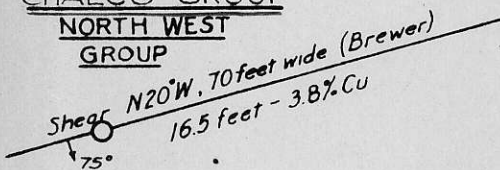 CHALCO GROUP
NORTH WEST
GROUP
Shear N20°W, 70 feet wide (Brewer)
16.5 feet - 3.8% Cu
75°